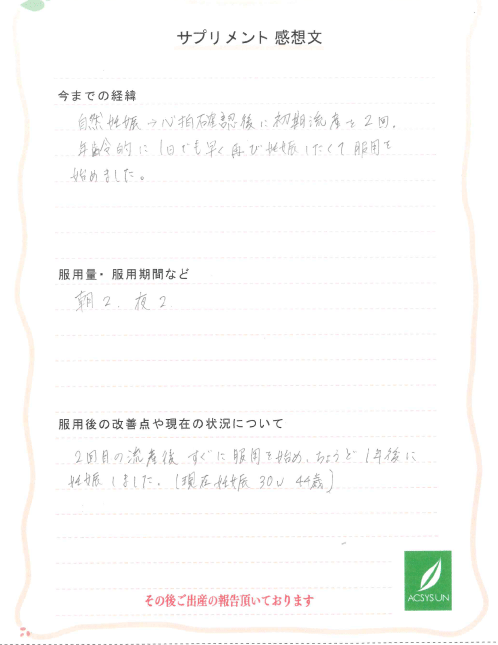 サプリメント 感想文
今までの経緯
自然妊娠→心拍確認後に初期流産を2回。
年齢的に1日でも早く再び妊娠したくて服用を
始めました。
服用量・服用期間など
朝2、夜2
服用後の改善点や現在の状況について
2回目の流産後、すぐに服用を始め、ちょうど1年後に
妊娠しました。(現在妊娠30w 44歳)
その後ご出産の報告頂いております
ACSYSUN